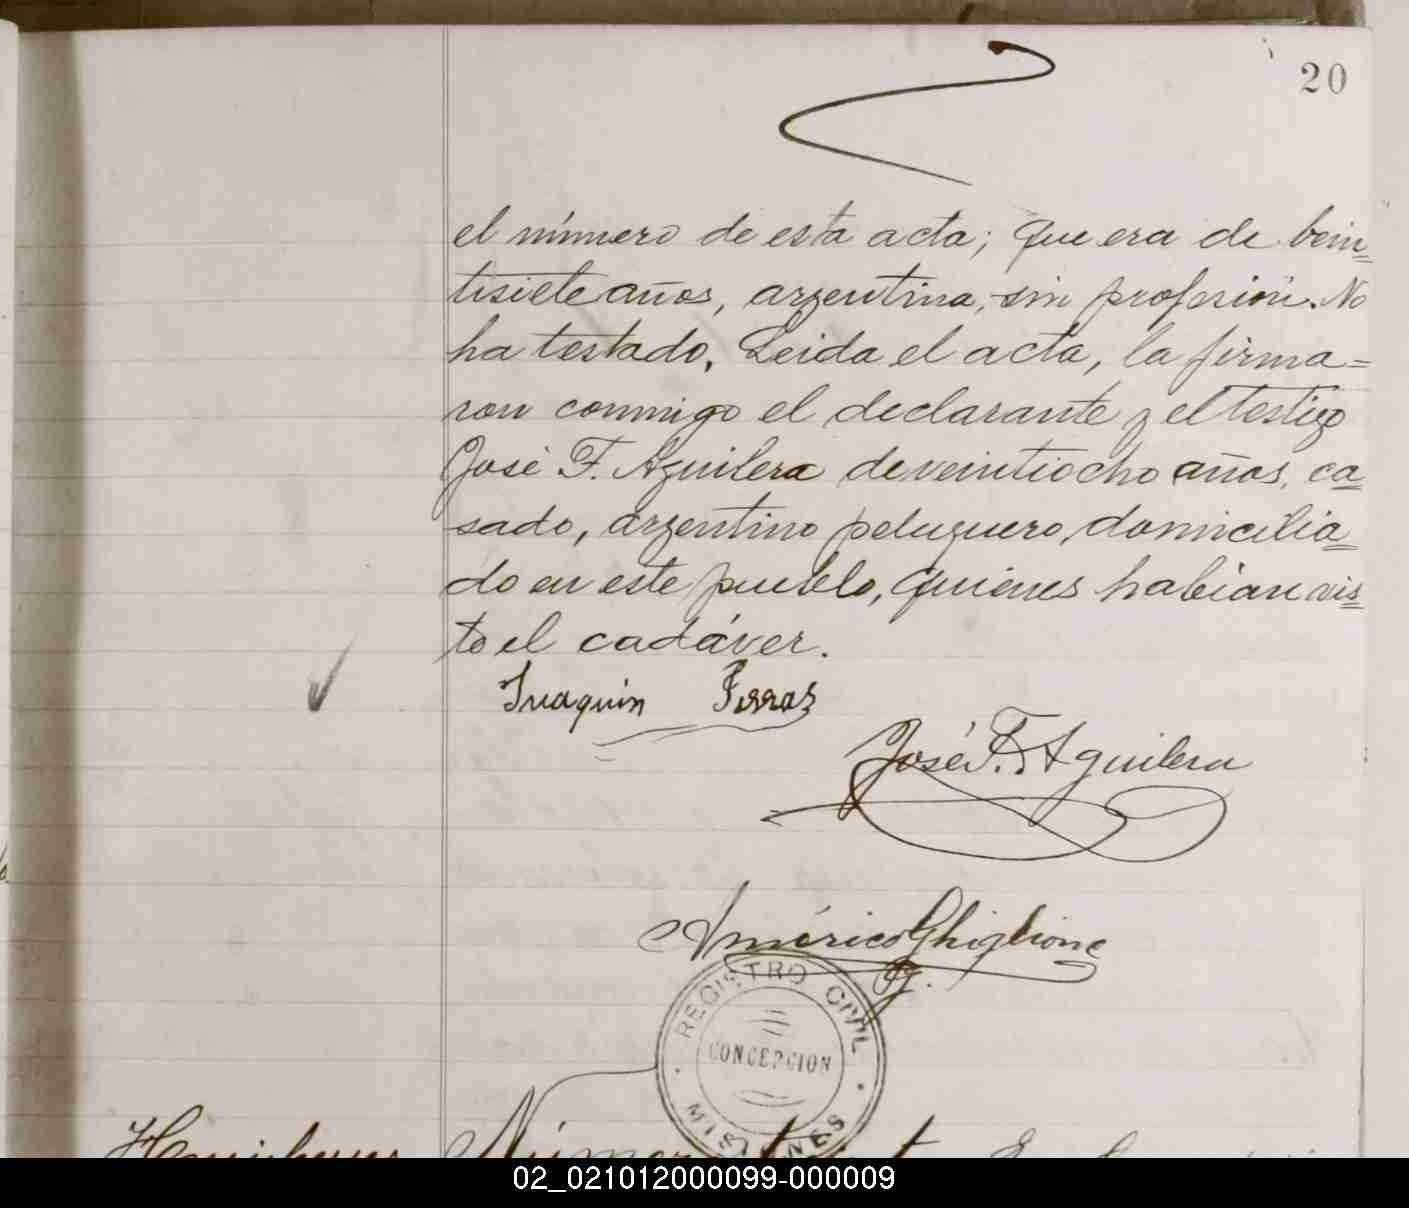 20
el número de esta acta; que era de bein=
tisiete años, argentina, sin profesión. No
ha testado. Leida el acta, la firma=
ron conmigo el declarante y el testigo
José F. Aguilera de veintiocho años, ca=
sado, argentino peluquero, domicilia=
do en este pueblo, quienes habian vis=
to el cadáver.
Juaquin Ferras
José F. Aguilera
Américo Ghiglione
REGISTRO CIVIL
CONCEPCION
MISIONES
02_021012000099-000009